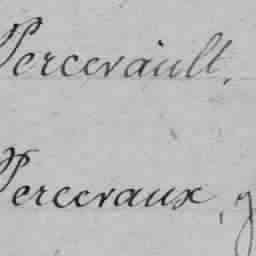 Percevault.
Percevaux, g